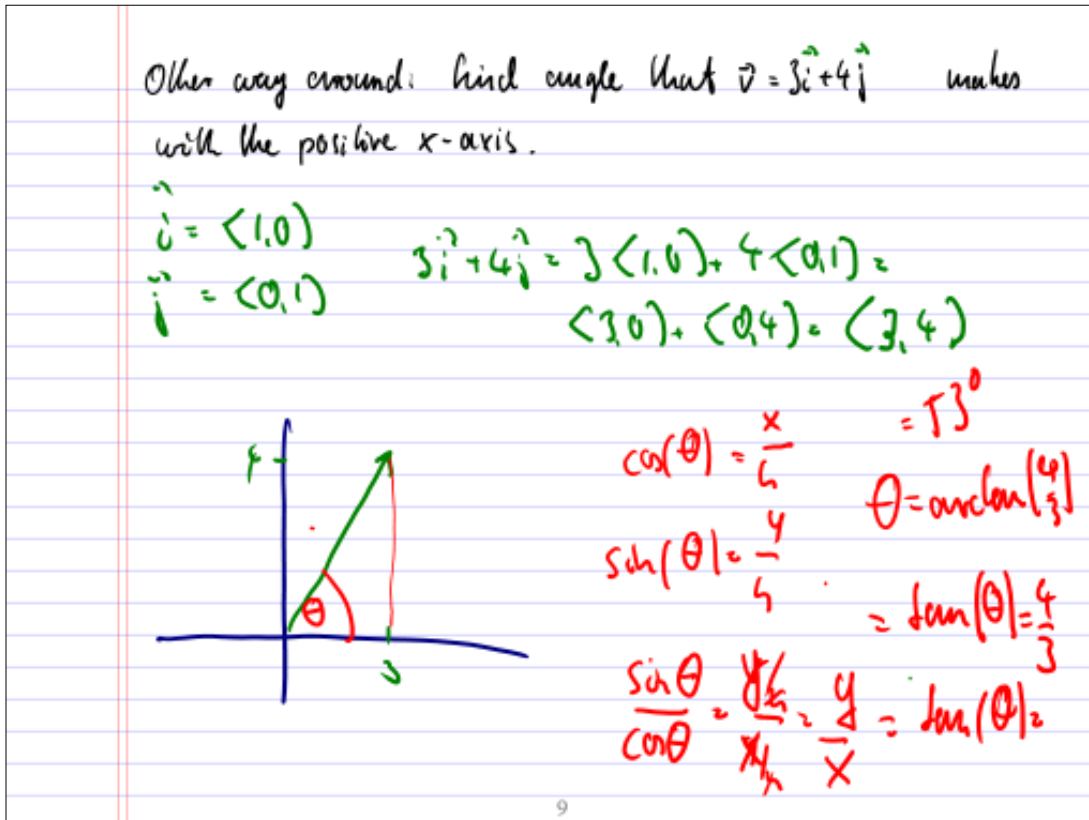 Other way around: find angle that v⃗ = 3i⃗ + 4j⃗ makes
with the positive x-axis.
i⃗ = <1,0>
j⃗ = <0,1>
3i⃗ + 4j⃗ = 3<1,0> + 4<0,1> =
<3,0> + <0,4> = <3,4>
4
θ
3
cos(θ) = x/h
sin(θ) = y/h
sinθ/cosθ = (y/h)/(x/h) = y/x = tan(θ) =
= tan(θ) = 4/3
θ = arctan(4/3)
= 53°
9